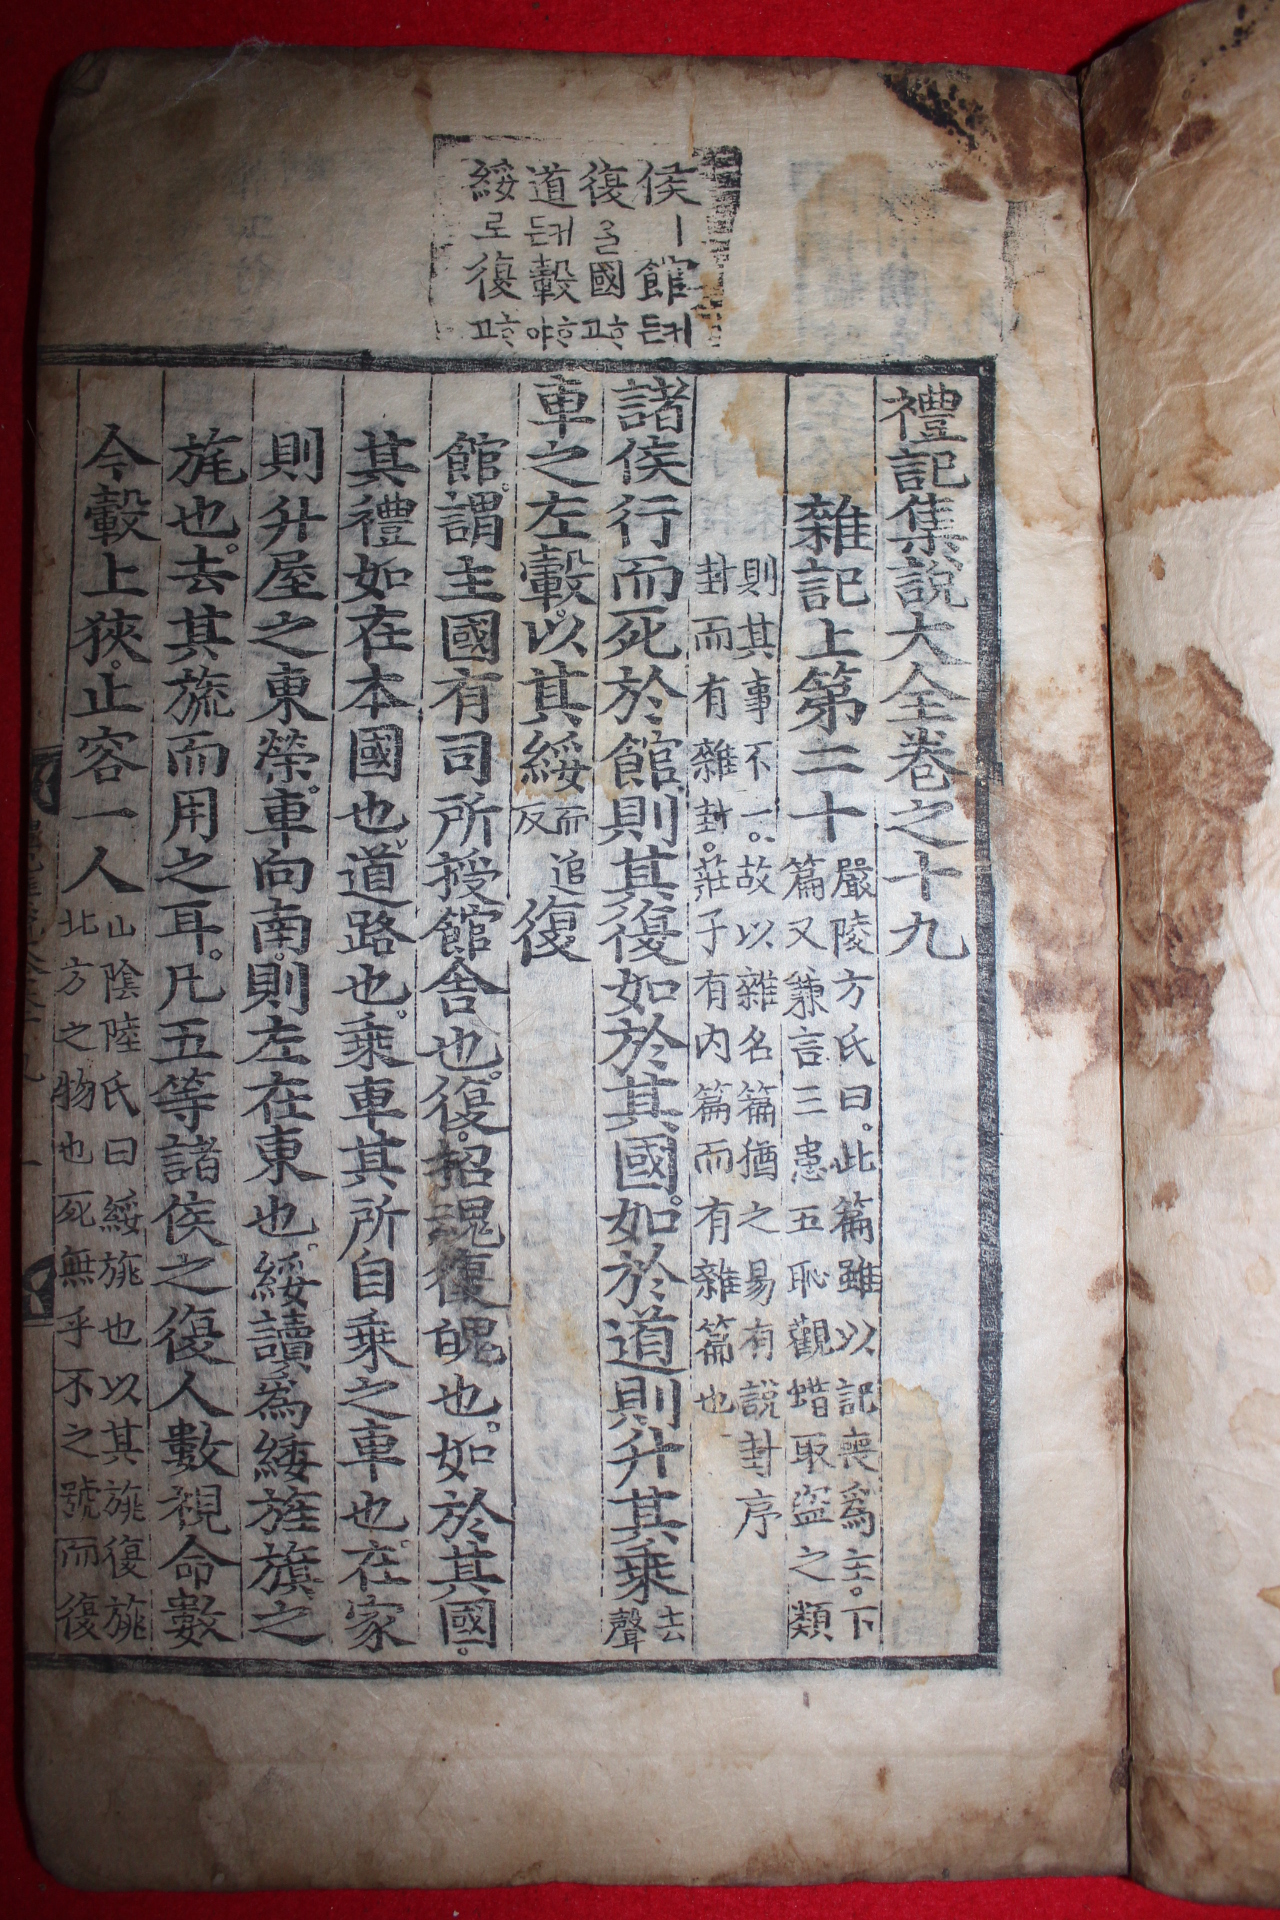 侯ㅣ館커든
復ᄋᆞᆯ國ᄒᆞ고
道커든轂ᄒᆞ야
綏로復ᄒᆞ고
禮記集說大全卷之十九
雜記上第二十
嚴陵方氏曰。此篇雖以記喪爲主。下
篇又兼言三患五恥觀蜡取盜之類
則其事不一。故以雜名篇猶之易有說封序
封而有雜封。莊子有内篇而有雜篇也
諸侯行而死於館則其復如於其國。如於道則升其乘去聲
車之左轂。以其綏而追反復
館。謂主國有司所授館舍也。復。招魂復魄也。如於其國。
其禮如在本國也。道路也。乘車其所自乘之車也。在家
則升屋之東榮。車向南。則左在東也。綏讀爲緌旌旗之
旄也。去其旒而用之耳。凡五等諸侯之復人數視命數
今轂上狹。止容一人
山陰陸氏曰綏旐也以其旐復旐
北方之物也死無乎不之號而復